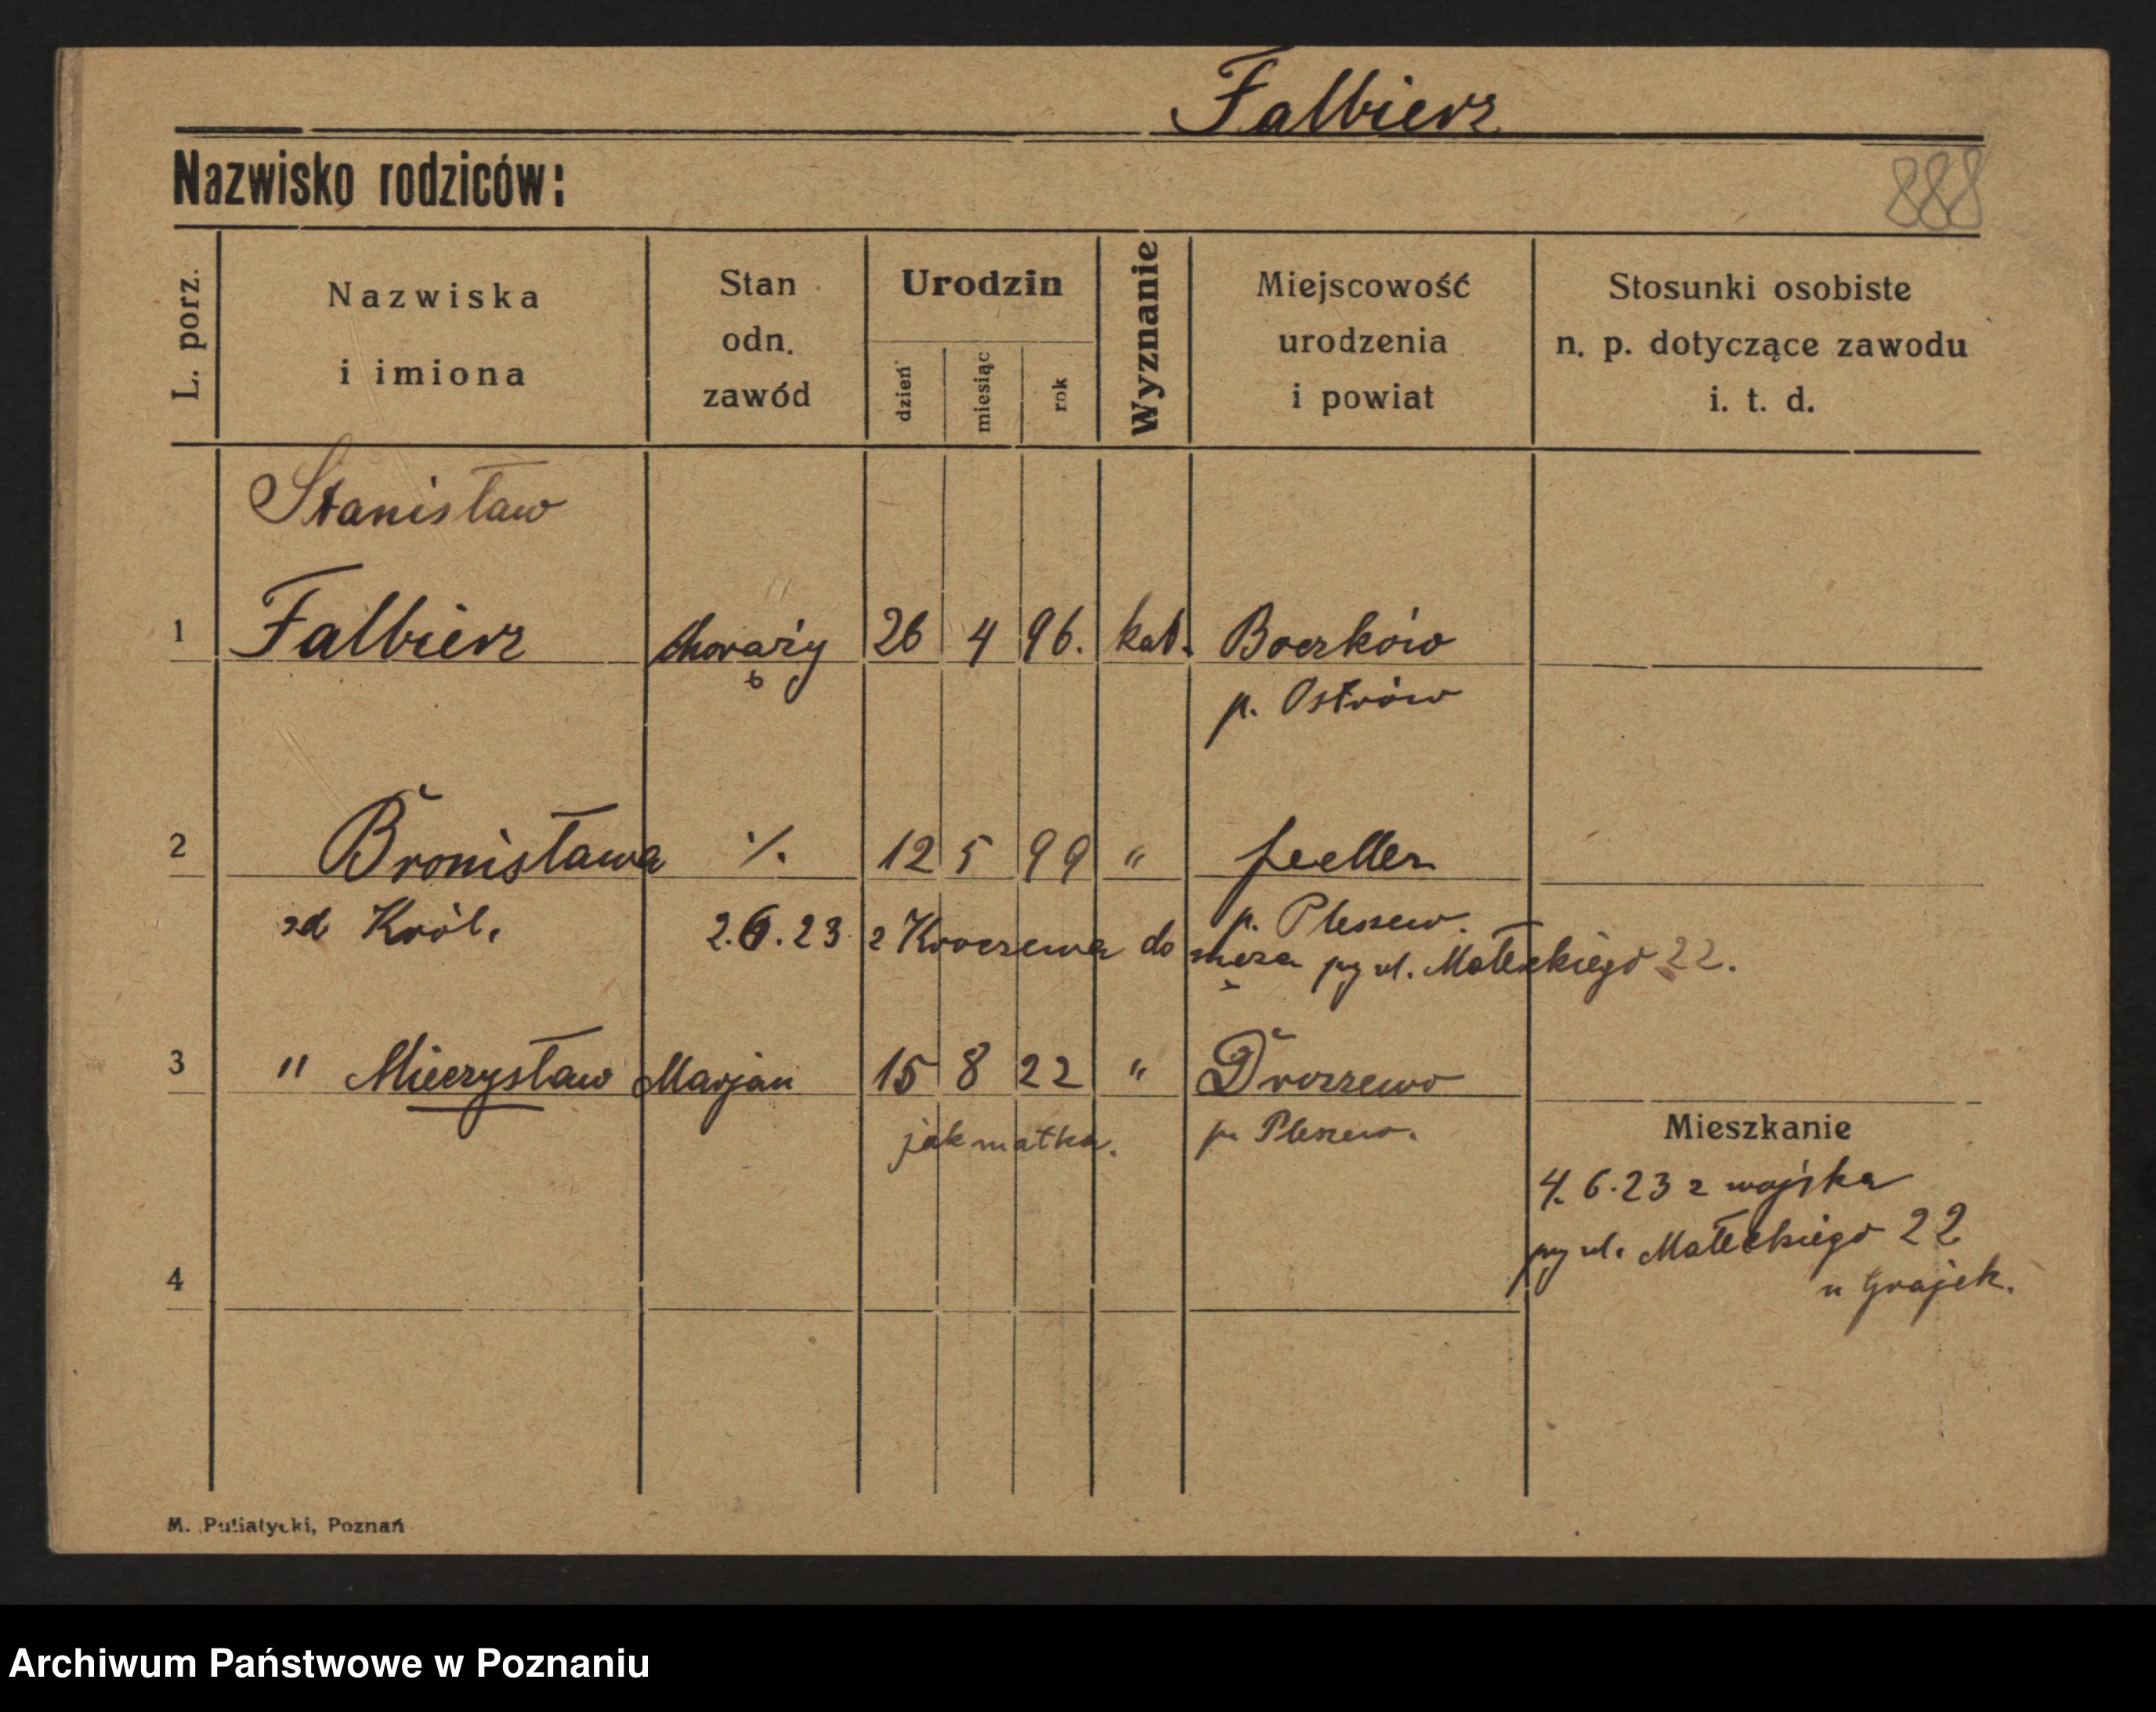 Falbierz
Nazwisko rodziców:
888
L. porz.
Nazwiska
i imiona
Stan
odn.
zawód
Urodzin
dzień
miesiąc
rok
Wyznanie
Miejscowość
urodzenia
i powiat
Stosunki osobiste
n. p. dotyczące zawodu
i. t. d.
Stanisław
1 Falbierz chorąży 26 4 96. kat. Boczków
p. Ostrów
2 Bronisława ·/. 12 5 99 "
p. Pleszew.
zd Król. 2.6.23 z do męża py ul. Małeckiego 22.
3 " Mieczysław Marjan 15 8 22 " Droszewo
jak matka. p. Pleszew.
Mieszkanie
4. 6. 23 z wojska
py ul. Małeckiego 22
u Grajek.
4
M. Putiatycki, Poznań
Archiwum Państwowe w Poznaniu